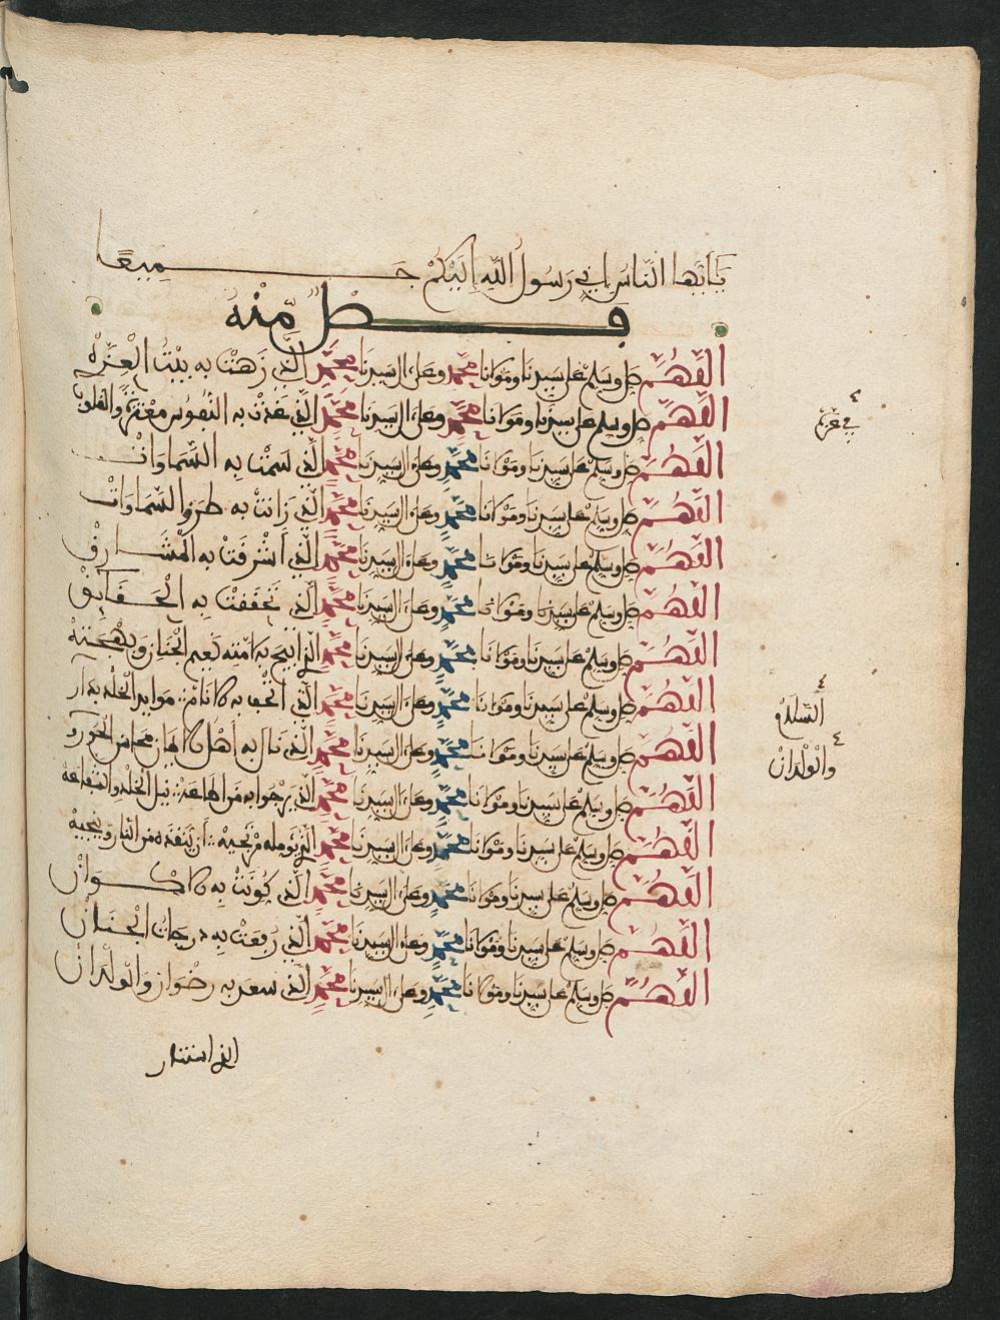 يَا أَيُّهَا النَّاسُ إِنِّي رَسُولُ اللَّهِ إِلَيْكُمْ جَمِيعًا
فصل منه
اللهم صل وسلم على سيدنا ومولانا محمد وعلى ال سيدنا محمد الذي زهت به بيت العزة
اللهم صل وسلم على سيدنا ومولانا محمد وعلى ال سيدنا محمد الذي غذت به النفوس والقلوب
اللهم صل وسلم على سيدنا ومولانا محمد وعلى ال سيدنا محمد الذي سمت به السماوات
اللهم صل وسلم على سيدنا ومولانا محمد وعلى ال سيدنا محمد الذي زانت به طرز السماوات
اللهم صل وسلم على سيدنا ومولانا محمد وعلى ال سيدنا محمد الذي أشرقت به المشارق
اللهم صل وسلم على سيدنا ومولانا محمد وعلى ال سيدنا محمد الذي تحققت به الحقايق
اللهم صل وسلم على سيدنا ومولانا محمد وعلى ال سيدنا محمد الذي ابيح به لامته نعيم الجنان وبهجته
اللهم صل وسلم على سيدنا ومولانا محمد وعلى ال سيدنا محمد الذي به الانام
اللهم صل وسلم على سيدنا ومولانا محمد وعلى ال سيدنا محمد الذي نال به أهل الايمان محاسن الحور و
اللهم صل وسلم على سيدنا ومولانا محمد وعلى ال سيدنا محمد الذي يرجوا به من اطاعه نيل الخلد والشفاعة
اللهم صل وسلم على سيدنا ومولانا محمد وعلى ال سيدنا محمد الذي أن ينقذه من النار وينجيه
اللهم صل وسلم على سيدنا ومولانا محمد وعلى ال سيدنا محمد الذي كونت به الاكوان
اللهم صل وسلم على سيدنا ومولانا محمد وعلى ال سيدنا محمد الذي رفعت به درجات الجنان
اللهم صل وسلم على سيدنا ومولانا محمد وعلى ال سيدنا محمد الذي سعد به رضوان والولدان
السلام
والولدان